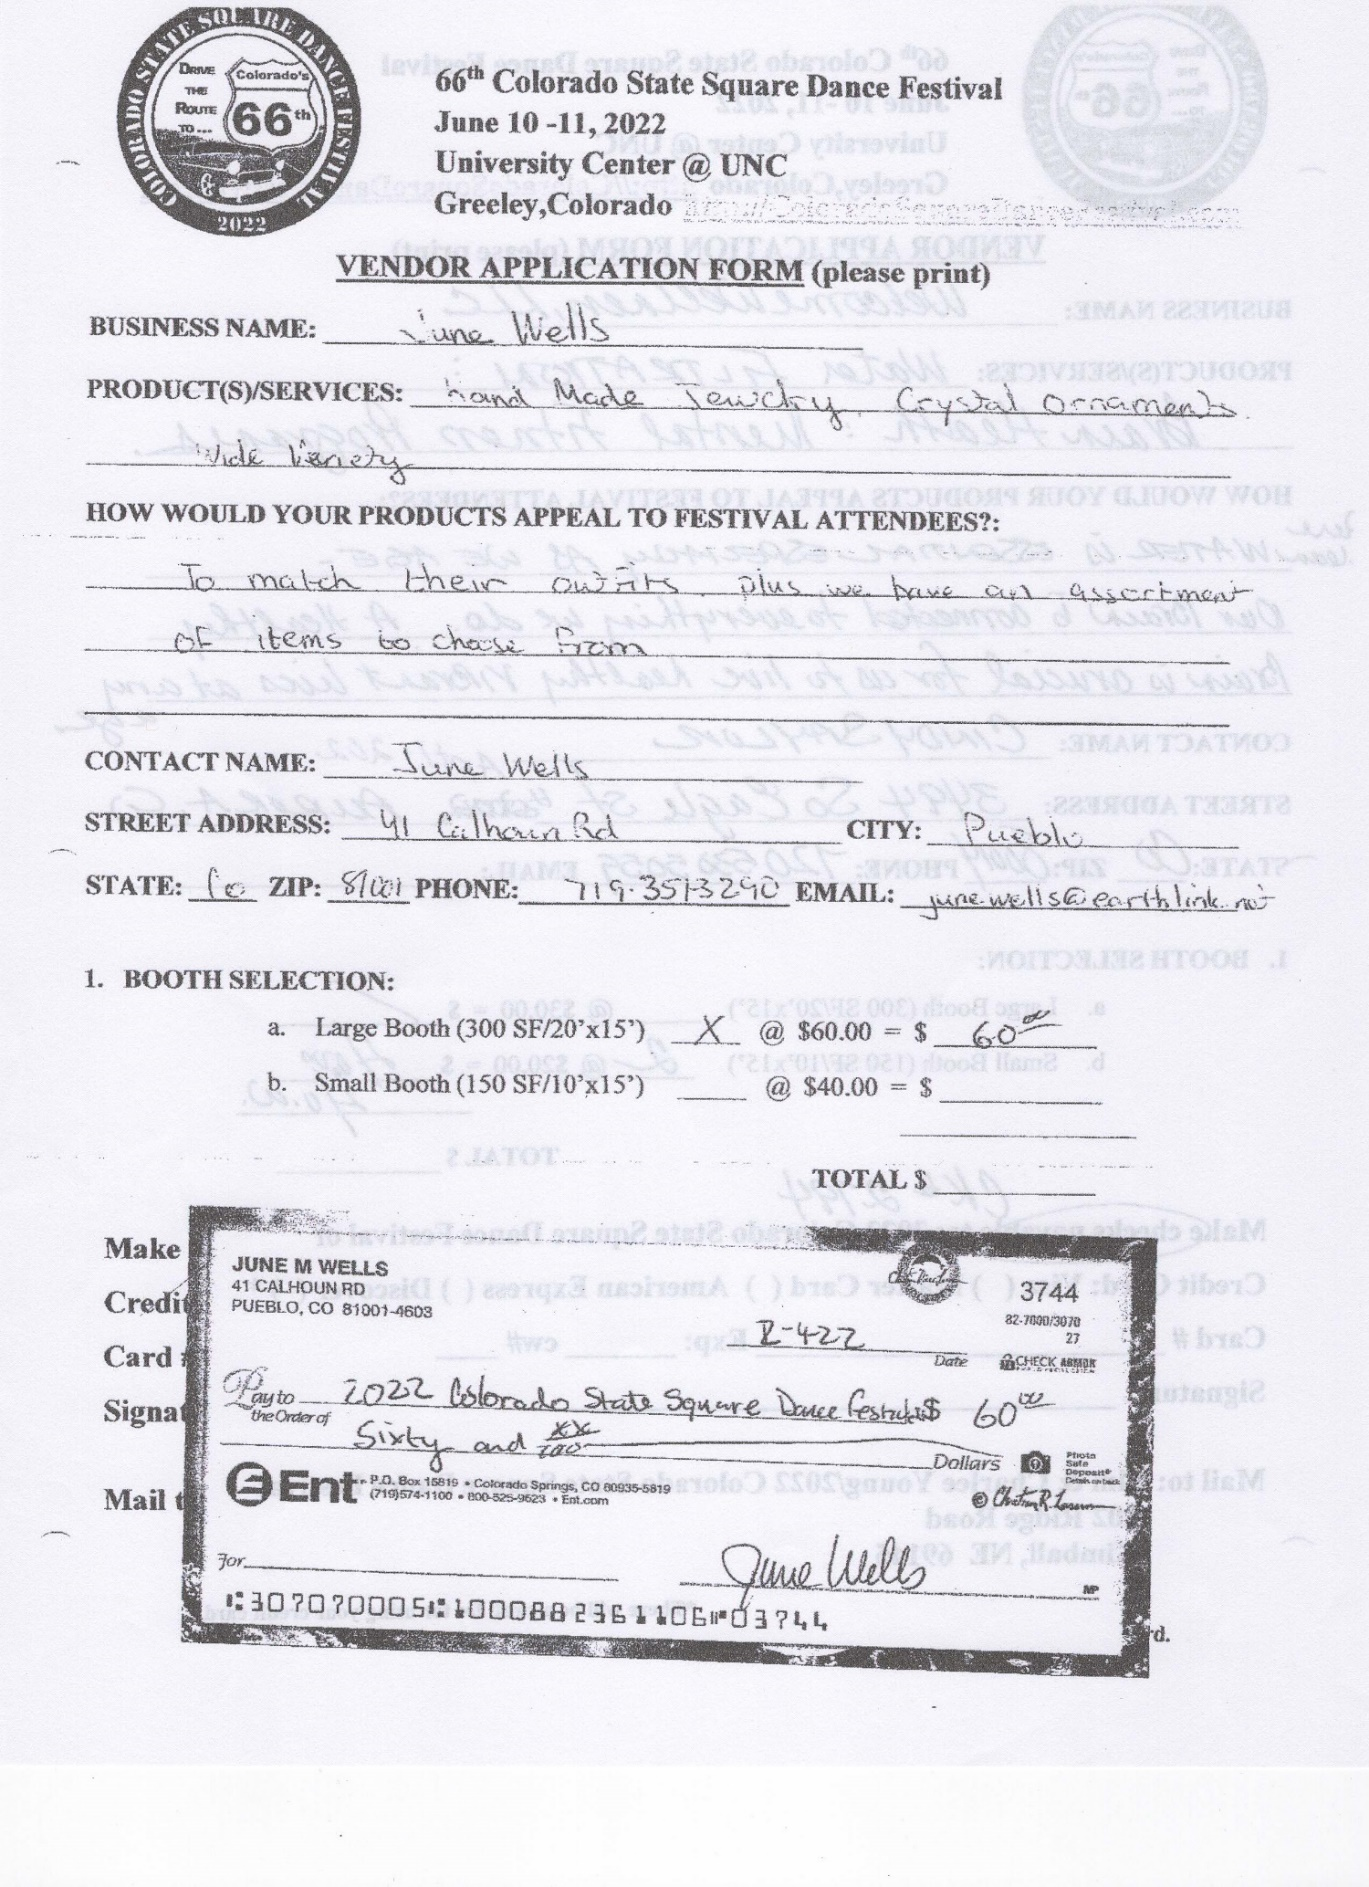 COLORADO STATE SQUARE DANCE FESTIVAL
DRIVE THE ROUTE TO ...
Colorado's 66th
2022
66th Colorado State Square Dance Festival
June 10 -11, 2022
University Center @ UNC
Greeley,Colorado
VENDOR APPLICATION FORM (please print)
BUSINESS NAME: June Wells
PRODUCT(S)/SERVICES: Hand Made Jewelry, Crystal ornaments.
Wide Variety
HOW WOULD YOUR PRODUCTS APPEAL TO FESTIVAL ATTENDEES?:
To match their outfits, plus we have an assortment
of items to choose from
CONTACT NAME: June Wells
STREET ADDRESS: 41 Calhoun Rd CITY: Pueblo
STATE: Co ZIP: 81001 PHONE: 719-351-3290 EMAIL: junewells@earthlink.net
1. BOOTH SELECTION:
a. Large Booth (300 SF/20'x15') X @ $60.00 = $ 60.00
b. Small Booth (150 SF/10'x15') @ $40.00 = $
TOTAL $
Make
Credit
Card #
Signat
Mail t
JUNE M WELLS
41 CALHOUN RD
PUEBLO, CO 81001-4603
3744
82-7000/3070
27
2-4-22
Date
CHECK ARMOR
Pay to the Order of 2022 Colorado State Square Dance Festival $ 60.00
Sixty and xx/100 Dollars
Photo Safe Deposit® Details on back
Ent P.O. Box 15819 • Colorado Springs, CO 80935-5819
(719)574-1100 • 800-525-9623 • Ent.com
For
June Wells
MP
⑆307070005⑆1000882361106⑈03744
rd.